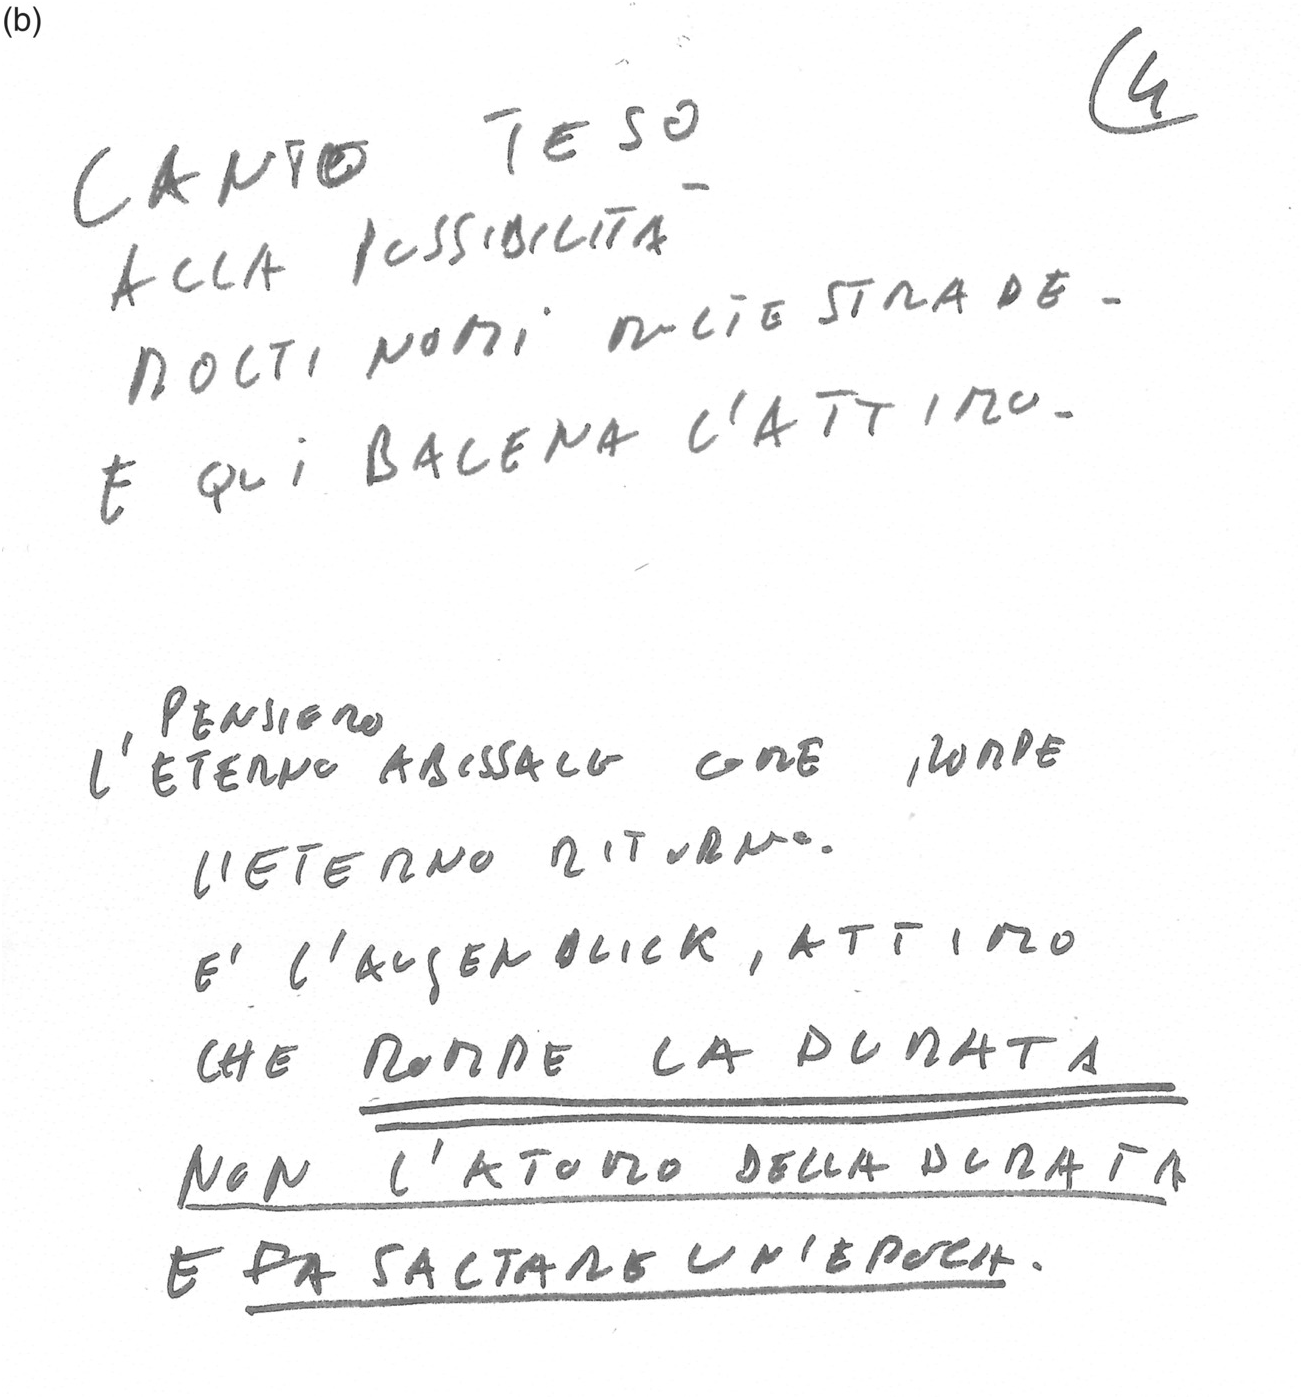 (b)
(4
CANTO TESO
ALLA POSSIBILITÀ
MOLTI NOMI MOLTE STRADE -
E QUI BALENA L'ATTIMO -
PENSIERO
L'ETERNO ABISSALE COME ROMPE
L'ETERNO RITORNO.
E' L'AUGENBLICK, ATTIMO
CHE ROMPE LA DURATA
NON L'ATOMO DELLA DURATA
E FA SALTARE UN'EPOCA.